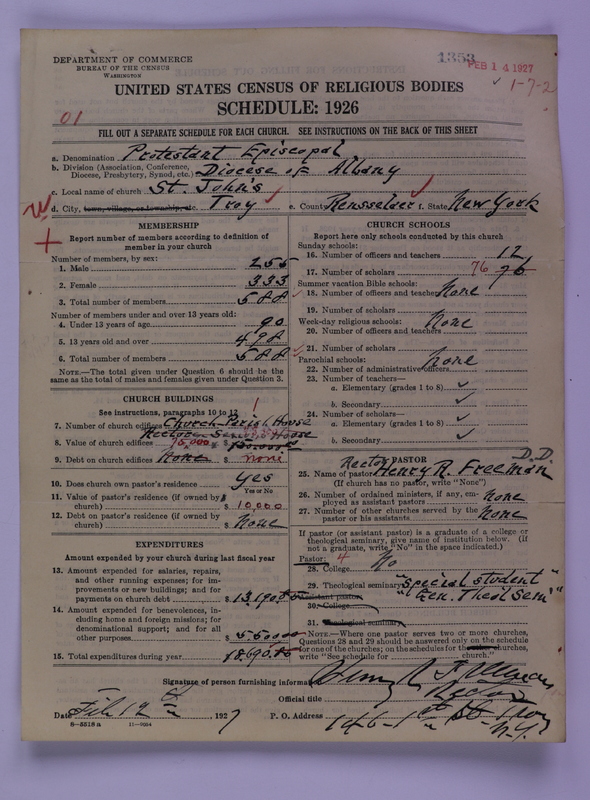 DEPARTMENT OF COMMERCE
BUREAU OF THE CENSUS
WASHINGTON
1353
FEB 14 1927
1-7-2
UNITED STATES CENSUS OF RELIGIOUS BODIES
SCHEDULE: 1926
01
FILL OUT A SEPARATE SCHEDULE FOR EACH CHURCH. SEE INSTRUCTIONS ON THE BACK OF THIS SHEET
a. Denomination Protestant Episcopal
b. Division (Association, Conference, Diocese, Presbytery, Synod, etc.) Diocese of Albany
c. Local name of church St. John's
d. City, town, village, or township, etc. Troy e. County Rensselaer f. State New York
MEMBERSHIP
Report number of members according to definition of member in your church
Number of members, by sex:
1. Male 255
2. Female 333
3. Total number of members 588
Number of members under and over 13 years old:
4. Under 13 years of age 90
5. 13 years old and over 498
6. Total number of members 588
NOTE.—The total given under Question 6 should be the same as the total of males and females given under Question 3.
CHURCH BUILDINGS
See instructions, paragraphs 10 to 12
7. Number of church edifices Church - Parish House
Rectory
House
8. Value of church edifices $
9. Debt on church edifices None $ none
10. Does church own pastor's residence Yes
Yes or No
11. Value of pastor's residence (if owned by church) $ 10,000
12. Debt on pastor's residence (if owned by church) $ None
EXPENDITURES
Amount expended by your church during last fiscal year
13. Amount expended for salaries, repairs, and other running expenses; for improvements or new buildings; and for payments on church debt $ 13,190.
14. Amount expended for benevolences, including home and foreign missions; for denominational support; and for all other purposes $ 5500
15. Total expenditures during year 18,690.
CHURCH SCHOOLS
Report here only schools conducted by this church
Sunday schools:
16. Number of officers and teachers 12
17. Number of scholars 76 76
Summer vacation Bible schools:
18. Number of officers and teachers None
19. Number of scholars
Week-day religious schools: None
20. Number of officers and teachers
21. Number of scholars
Parochial schools: None
22. Number of administrative officers
23. Number of teachers—
a. Elementary (grades 1 to 8)
b. Secondary
24. Number of scholars—
a. Elementary (grades 1 to 8)
b. Secondary
Rector PASTOR D.D.
25. Name of pastor Henry R. Freeman
(If church has no pastor, write "None")
26. Number of ordained ministers, if any, employed as assistant pastors None
27. Number of other churches served by the pastor or his assistants None
If pastor (or assistant pastor) is a graduate of a college or theological seminary, give name of institution below. (If not a graduate, write "No" in the space indicated.)
Pastor: 4
28. College No
29. Theological seminary "Special student
Assistant pastor: "Gen. Theol Sem"
30. College
31. Theological seminary
NOTE.—Where one pastor serves two or more churches, Questions 28 and 29 should be answered only on the schedule for one of the churches; on the schedules for the other churches, write "See schedule for church."
Signature of person furnishing information Henry R. Freeman
Official title Rector
Date Feb 12 1927 P. O. Address 146-1st St. Troy
N.Y.
8-5518 a